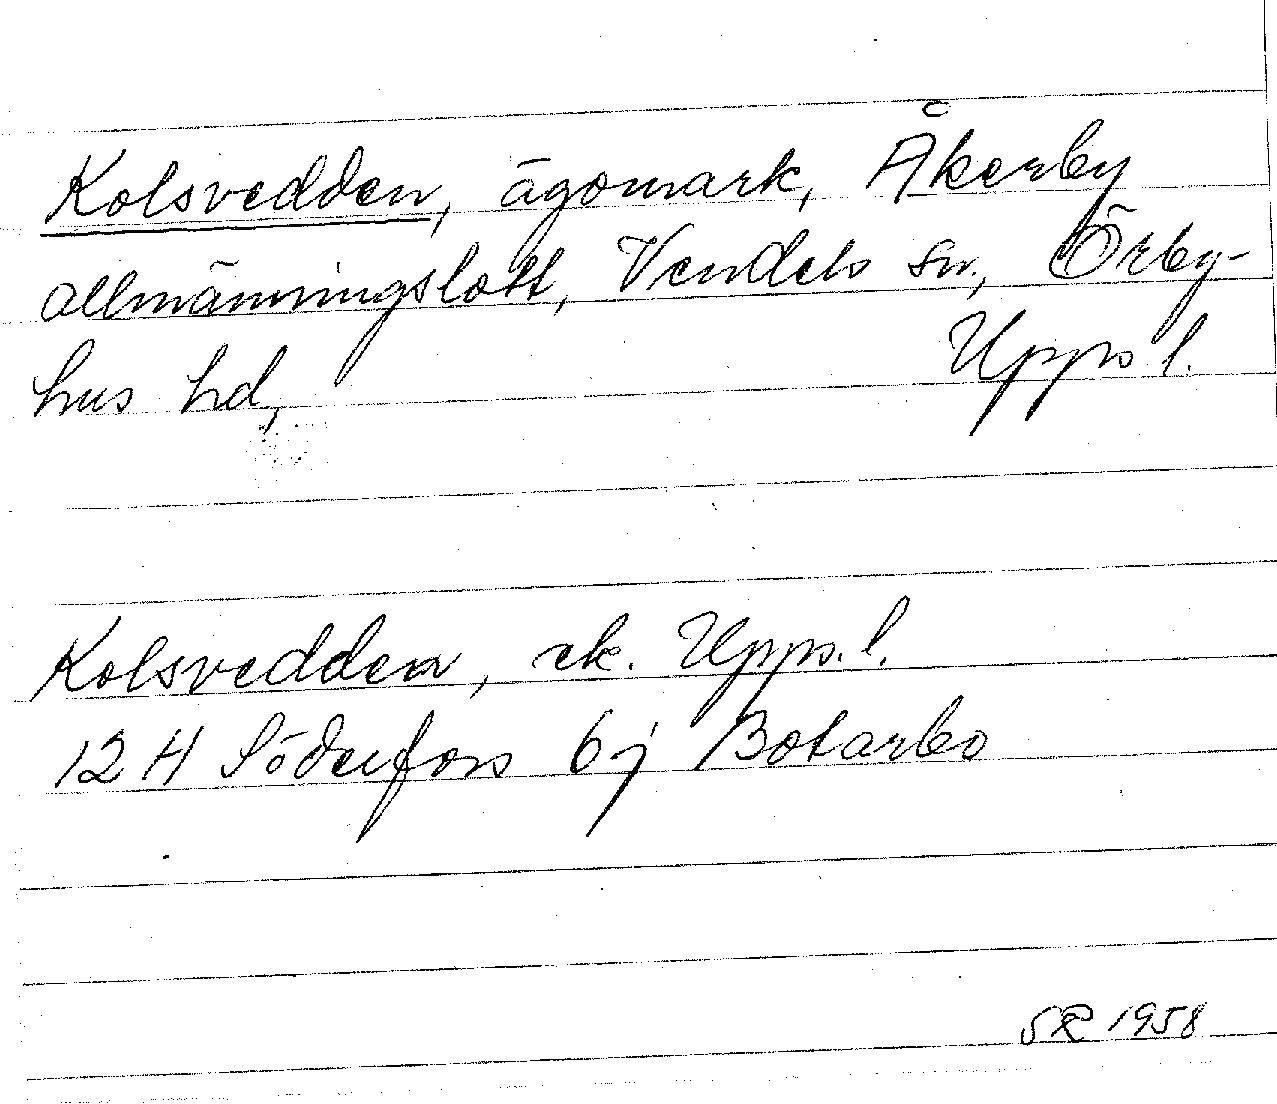 Kolsvedden, ägomark, Åkerby
allmänningslott, Vendels sn., Örby-
hus hd,
Upps l.
Kolsvedden, ek. Upps. l.
12 H Söderfors 6j Botarbo
SR 1958